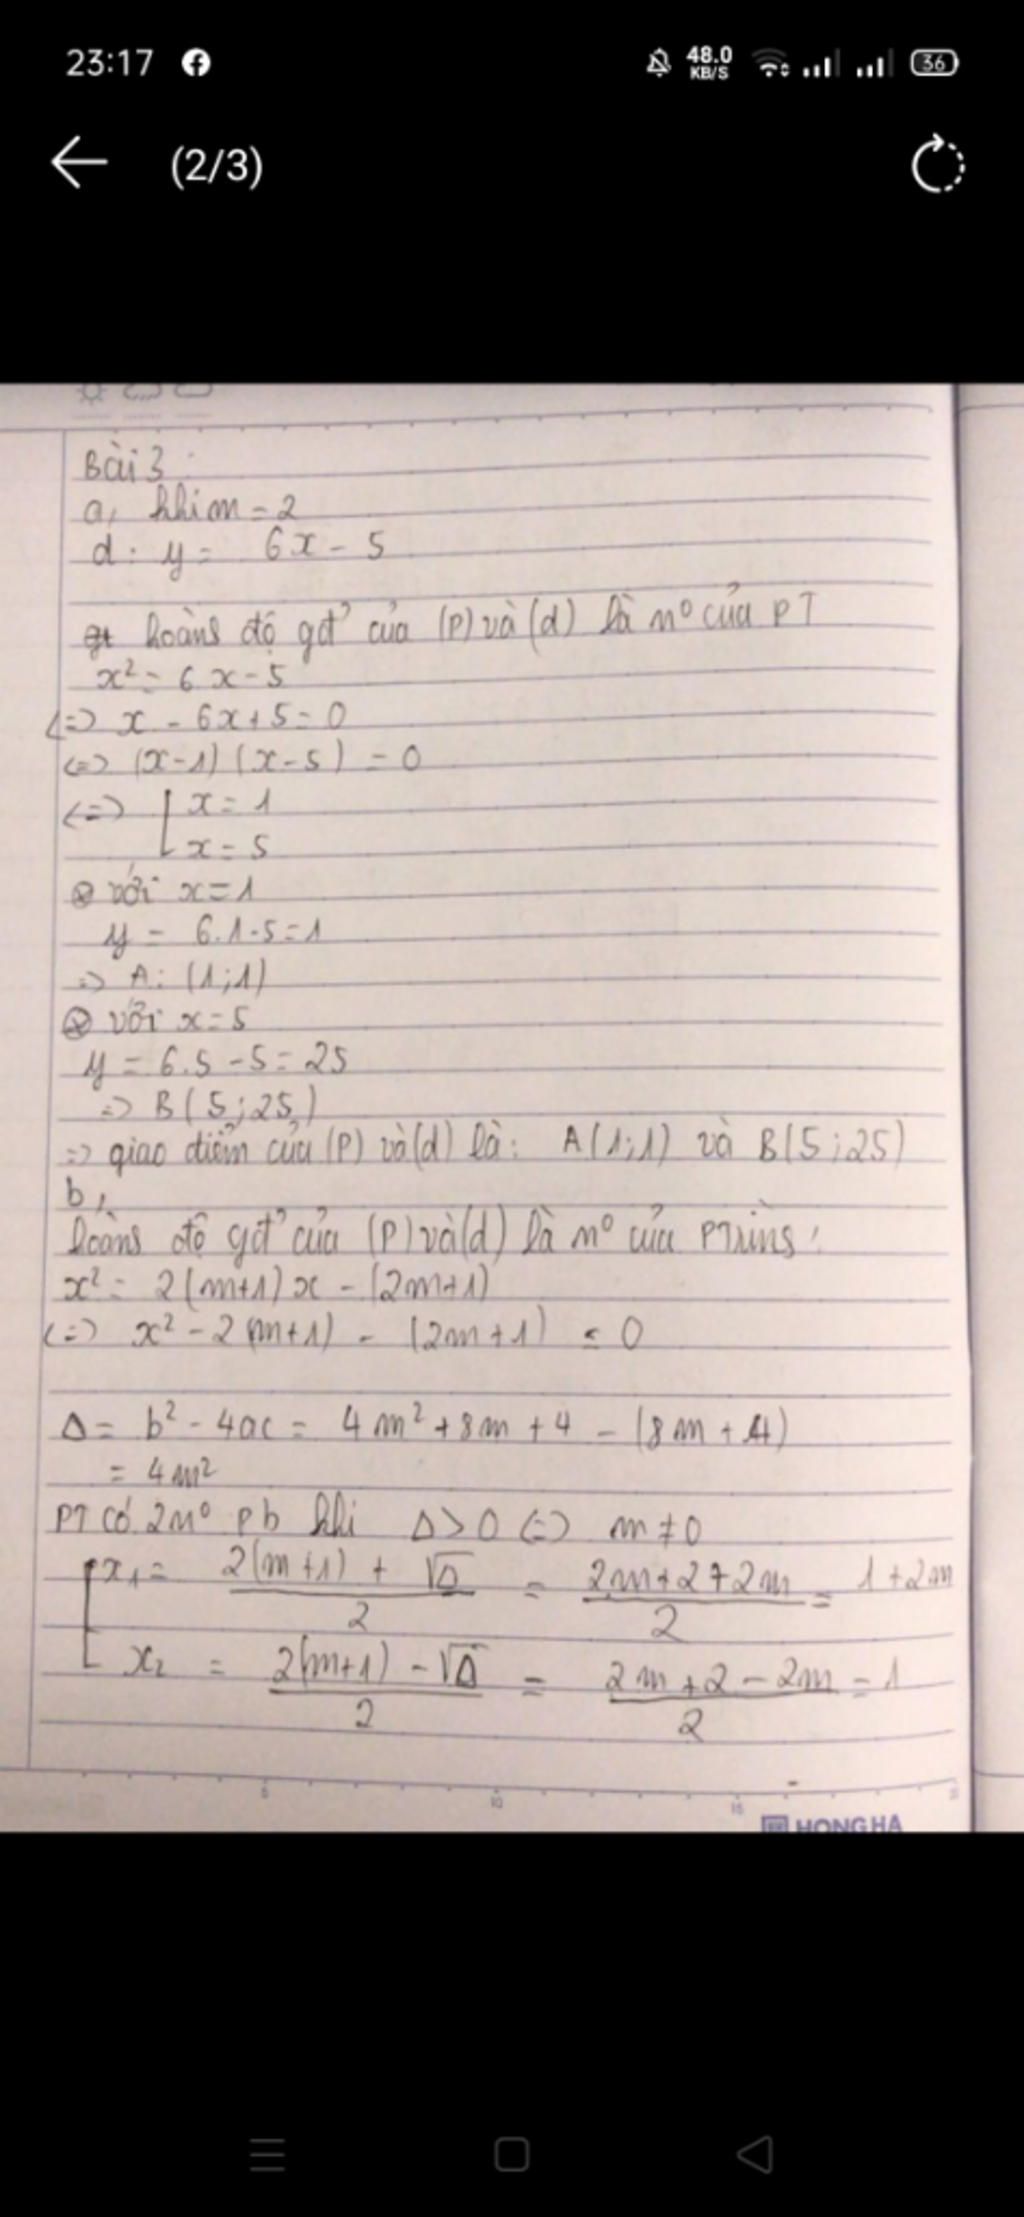 23:17
48.0
KB/S
36
(2/3)
Bài 3:
a, khi m = 2
d: y = 6x - 5
hoành độ gđ' của (P) và (d) là n° của PT
x² = 6x - 5
<=> x - 6x + 5 = 0
<=> (x-1)(x-5) = 0
<=> [ x = 1
x = 5
⊗ với x = 1
y = 6.1-5 = 1
=> A: (1;1)
⊗ với x = 5
y = 6.5 - 5 = 25
=> B(5;25)
=> giao điểm của (P) và (d) là: A(1;1) và B(5;25)
b,
hoành độ gđ' của (P) và (d) là n° của PTrình:
x² = 2(m+1)x - (2m+1)
<=> x² - 2(m+1) - (2m+1) = 0
Δ = b² - 4ac = 4m² + 8m + 4 - (8m + 4)
= 4m²
PT có 2 n° pb khi Δ > 0 <=> m ≠ 0
[ x₁ = (2(m+1) + √Δ)/2 = (2m+2+2m)/2 = 1 + 2m
x₂ = (2(m+1) - √Δ)/2 = (2m+2-2m)/2 = 1
5 10 15
HONG HA